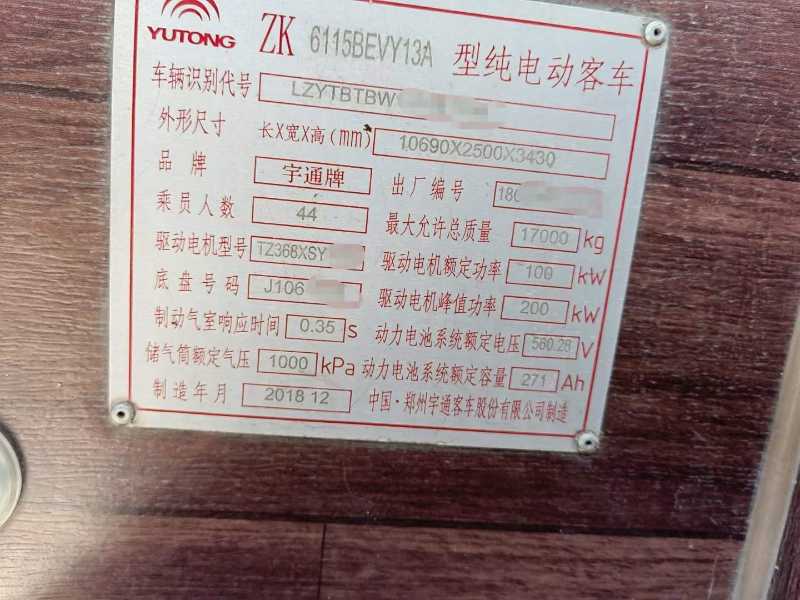 YUTONG ZK 6115BEVY13A 型纯电动客车
车辆识别代号 LZYTBTBW
外形尺寸 长X宽X高(mm) 10690X2500X3430
品牌 宇通牌 出厂编号 180
乘员人数 44 最大允许总质量 17000 kg
驱动电机型号 TZ368XSY 驱动电机额定功率 100 kW
底盘号码 J106 驱动电机峰值功率 200 kW
制动气室响应时间 0.35 s 动力电池系统额定电压 560.28 V
储气筒额定气压 1000 kPa 动力电池系统额定容量 271 Ah
制造年月 2018 12 中国·郑州宇通客车股份有限公司制造